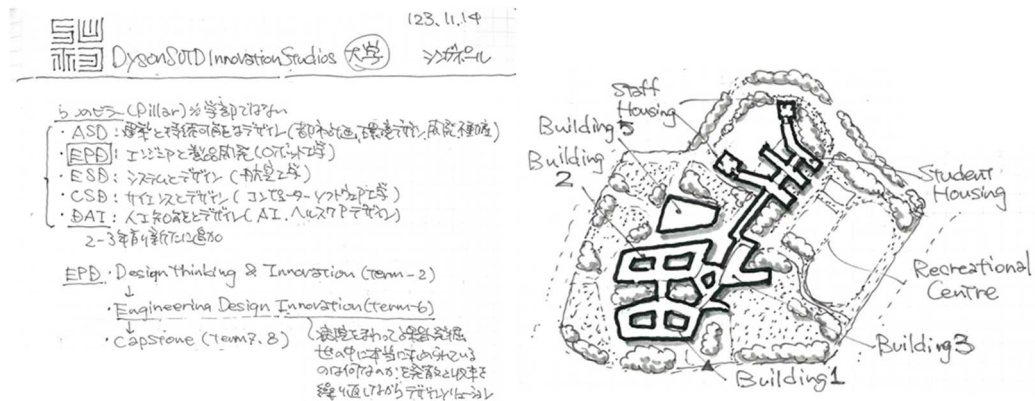 '23.11.14
DysonSUTD Innovation Studios 大学 シンガポール
5つのピラー(Pillar)※学部ではない
・ASD:建築と持続可能なデザイン(都市計画、環境デザイン、
・EPD:エンジニアと製品開発(ロボット工学)
・ESD:システムとデザイン(航空工学)
・CSD:サイエンスとデザイン(コンピューターソフトウェア工学)
・DAI:人工知能とデザイン(AI、ヘルスケアデザイン)
2-3年前に新たに追加
EPD・Design thinking & Innovation (Term-2)
↓
・Engineering Design Innovation (Term-6)
↓
・Capstone (Term7.8)
世の中に本当に求められている
のは何なのかを発散と収束を
繰り返しながらデザインソリューション
Staff
Housing
Building 5
Building
2
Student
Housing
Recreational
Centre
Building 3
Building 1